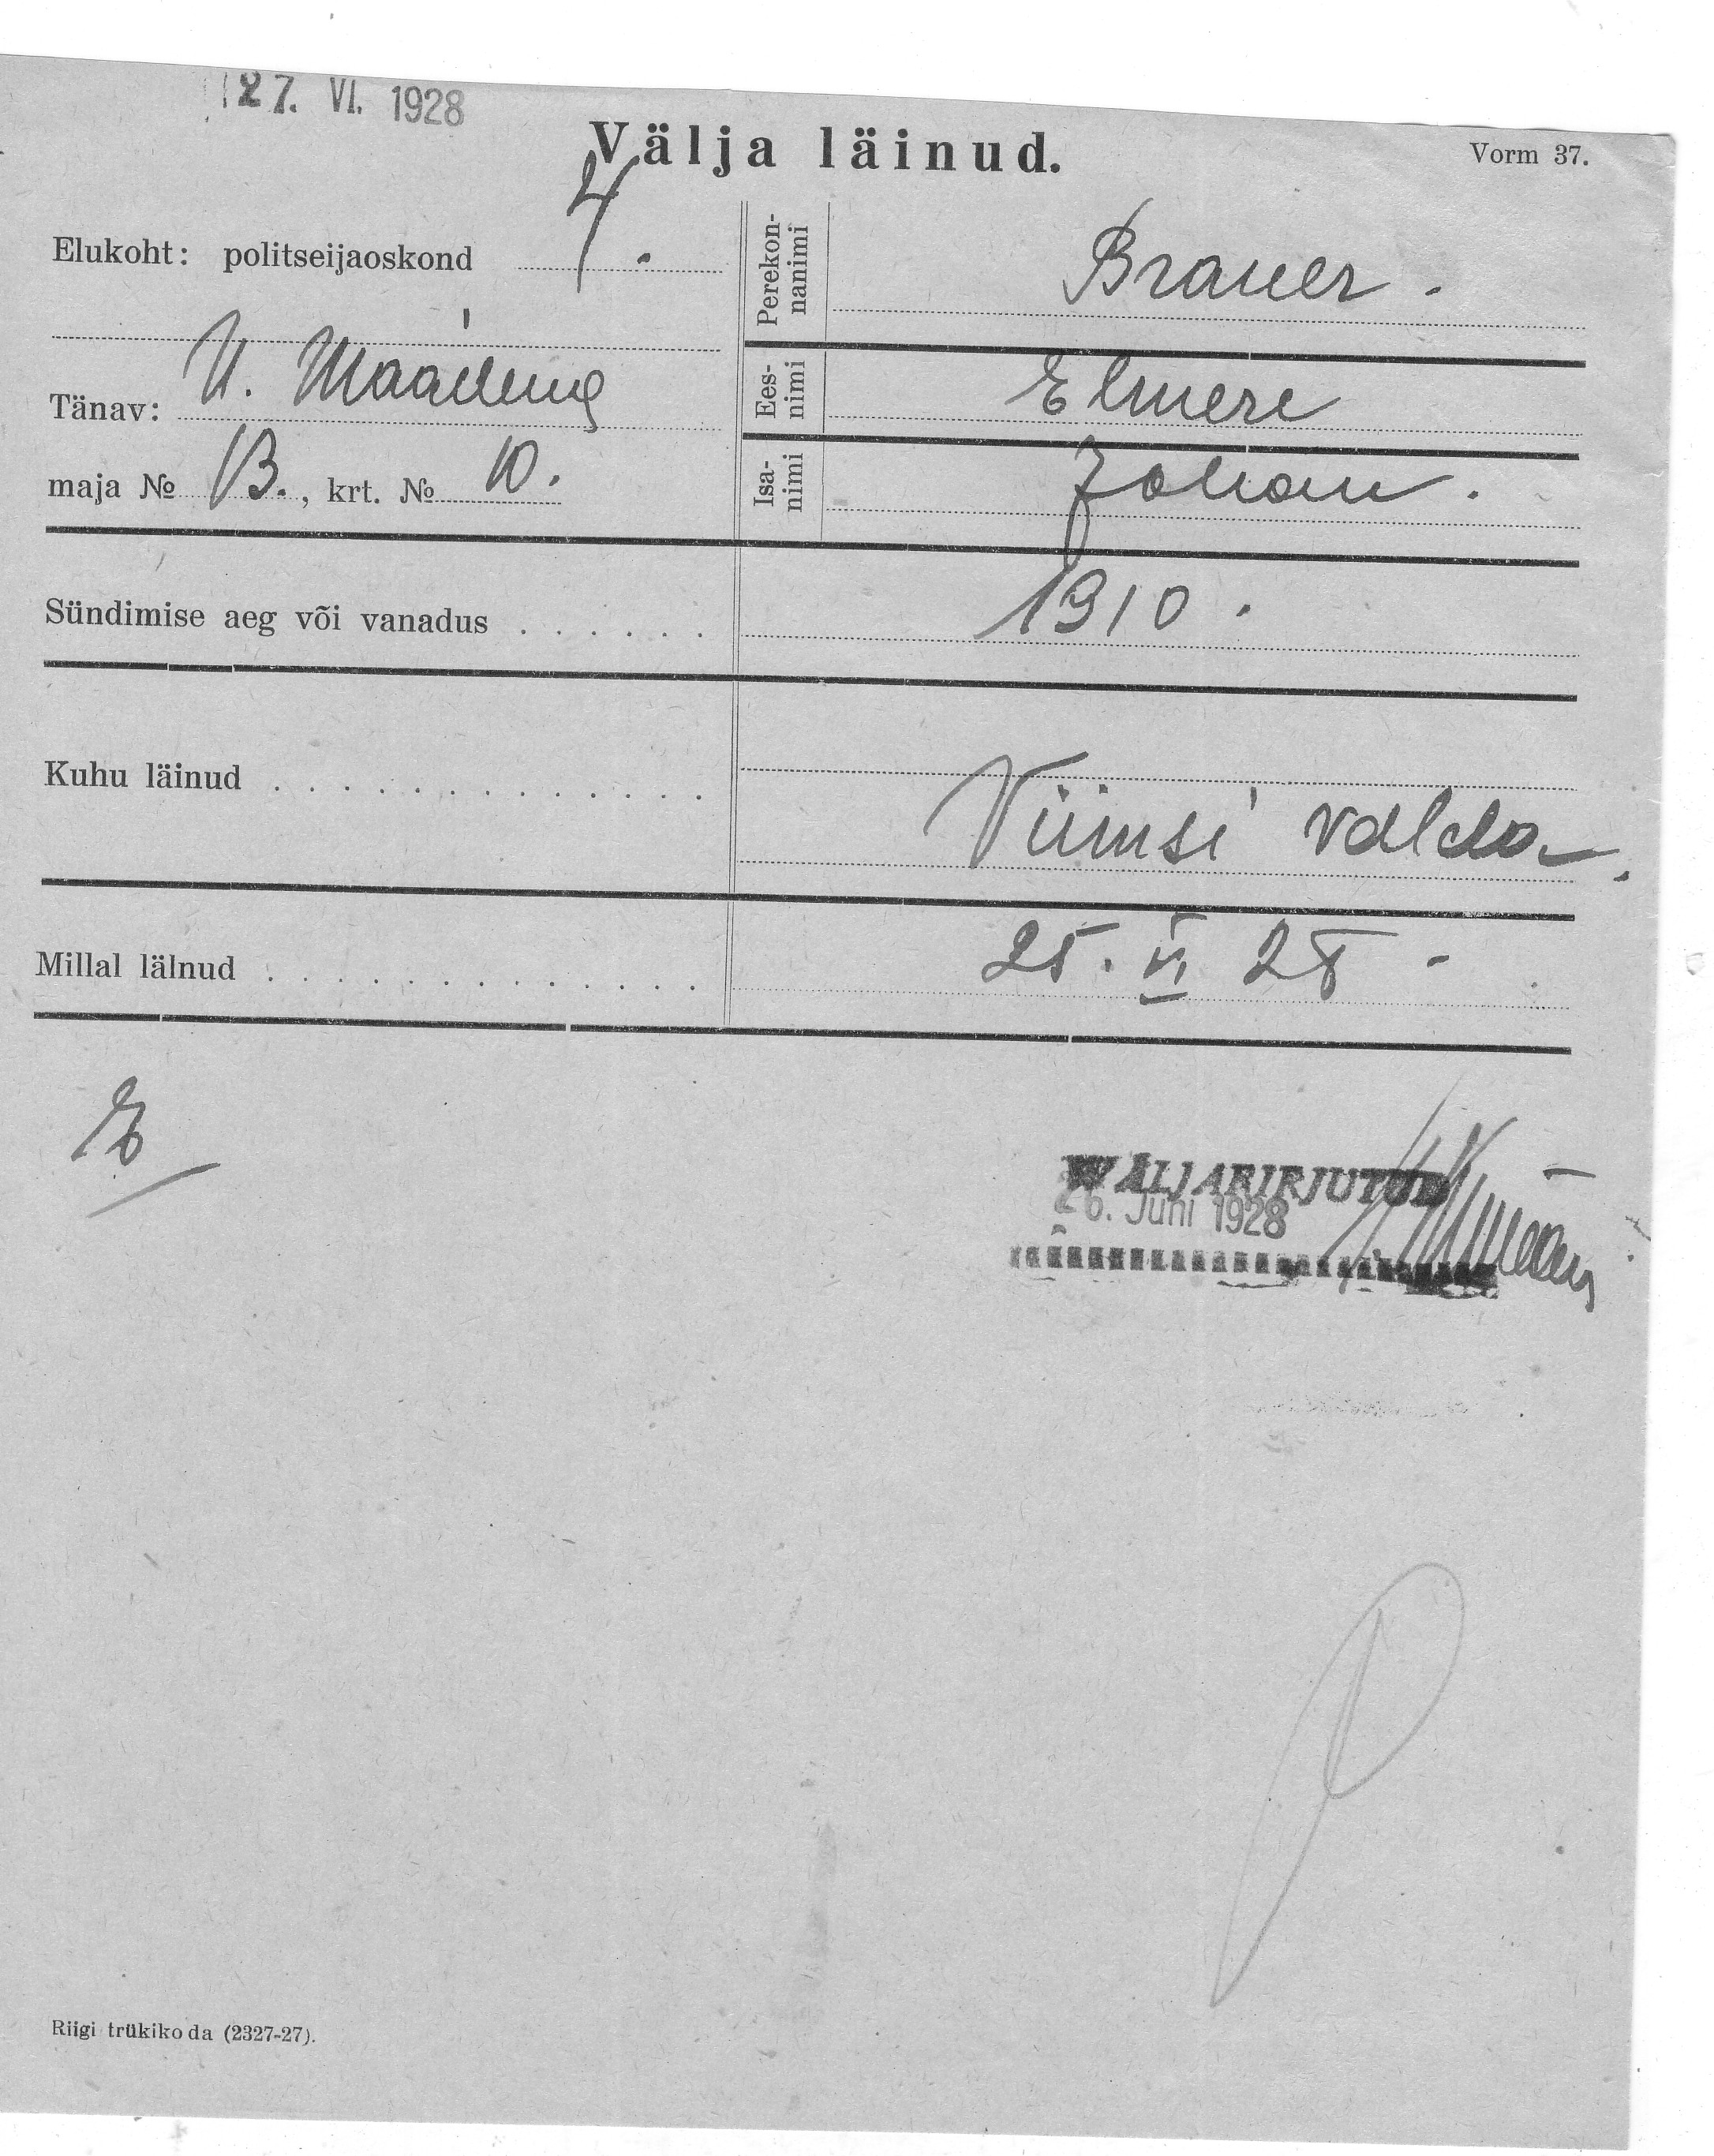 27. VI. 1928
Välja läinud.
Vorm 37.
Elukoht: politseijaoskond 4.
Tänav:
maja № 13., krt. № 10.
Perekon-
nanimi
Brauer.
Ees-
nimi
Elmere
Isa-
nimi
Johan.
Sündimise aeg või vanadus . . . . . .
1910.
Kuhu läinud . . . . . . . . . . . . .
Viimsi valda.
Millal läinud . . . . . . . . . . . . .
25. VI 28 -
WÄLJAKIRJUTUD
26. Juni 1928
Riigi trükikoda (2327-27).